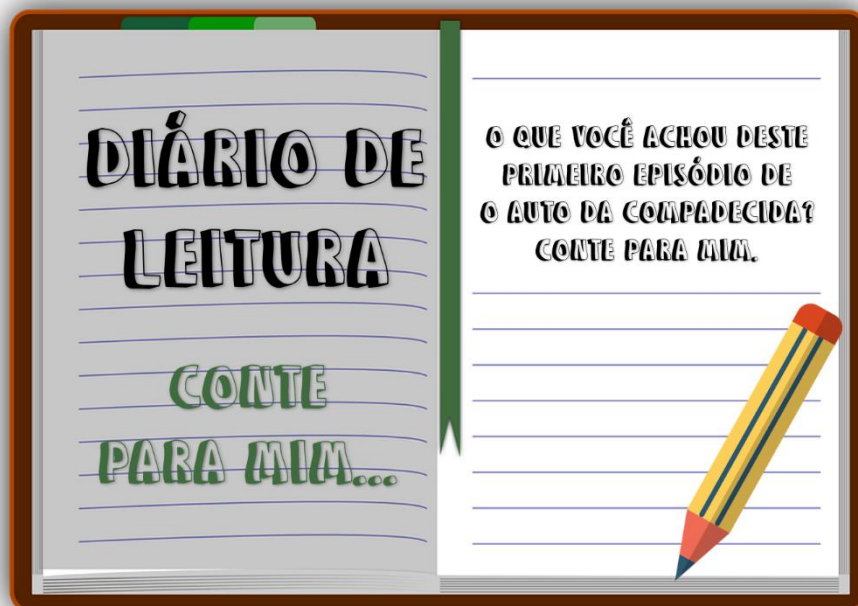 DIÁRIO DE
LEITURA
CONTE
PARA MIM...
O QUE VOCÊ ACHOU DESTE
PRIMEIRO EPISÓDIO DE
O AUTO DA COMPADECIDA?
CONTE PARA MIM.